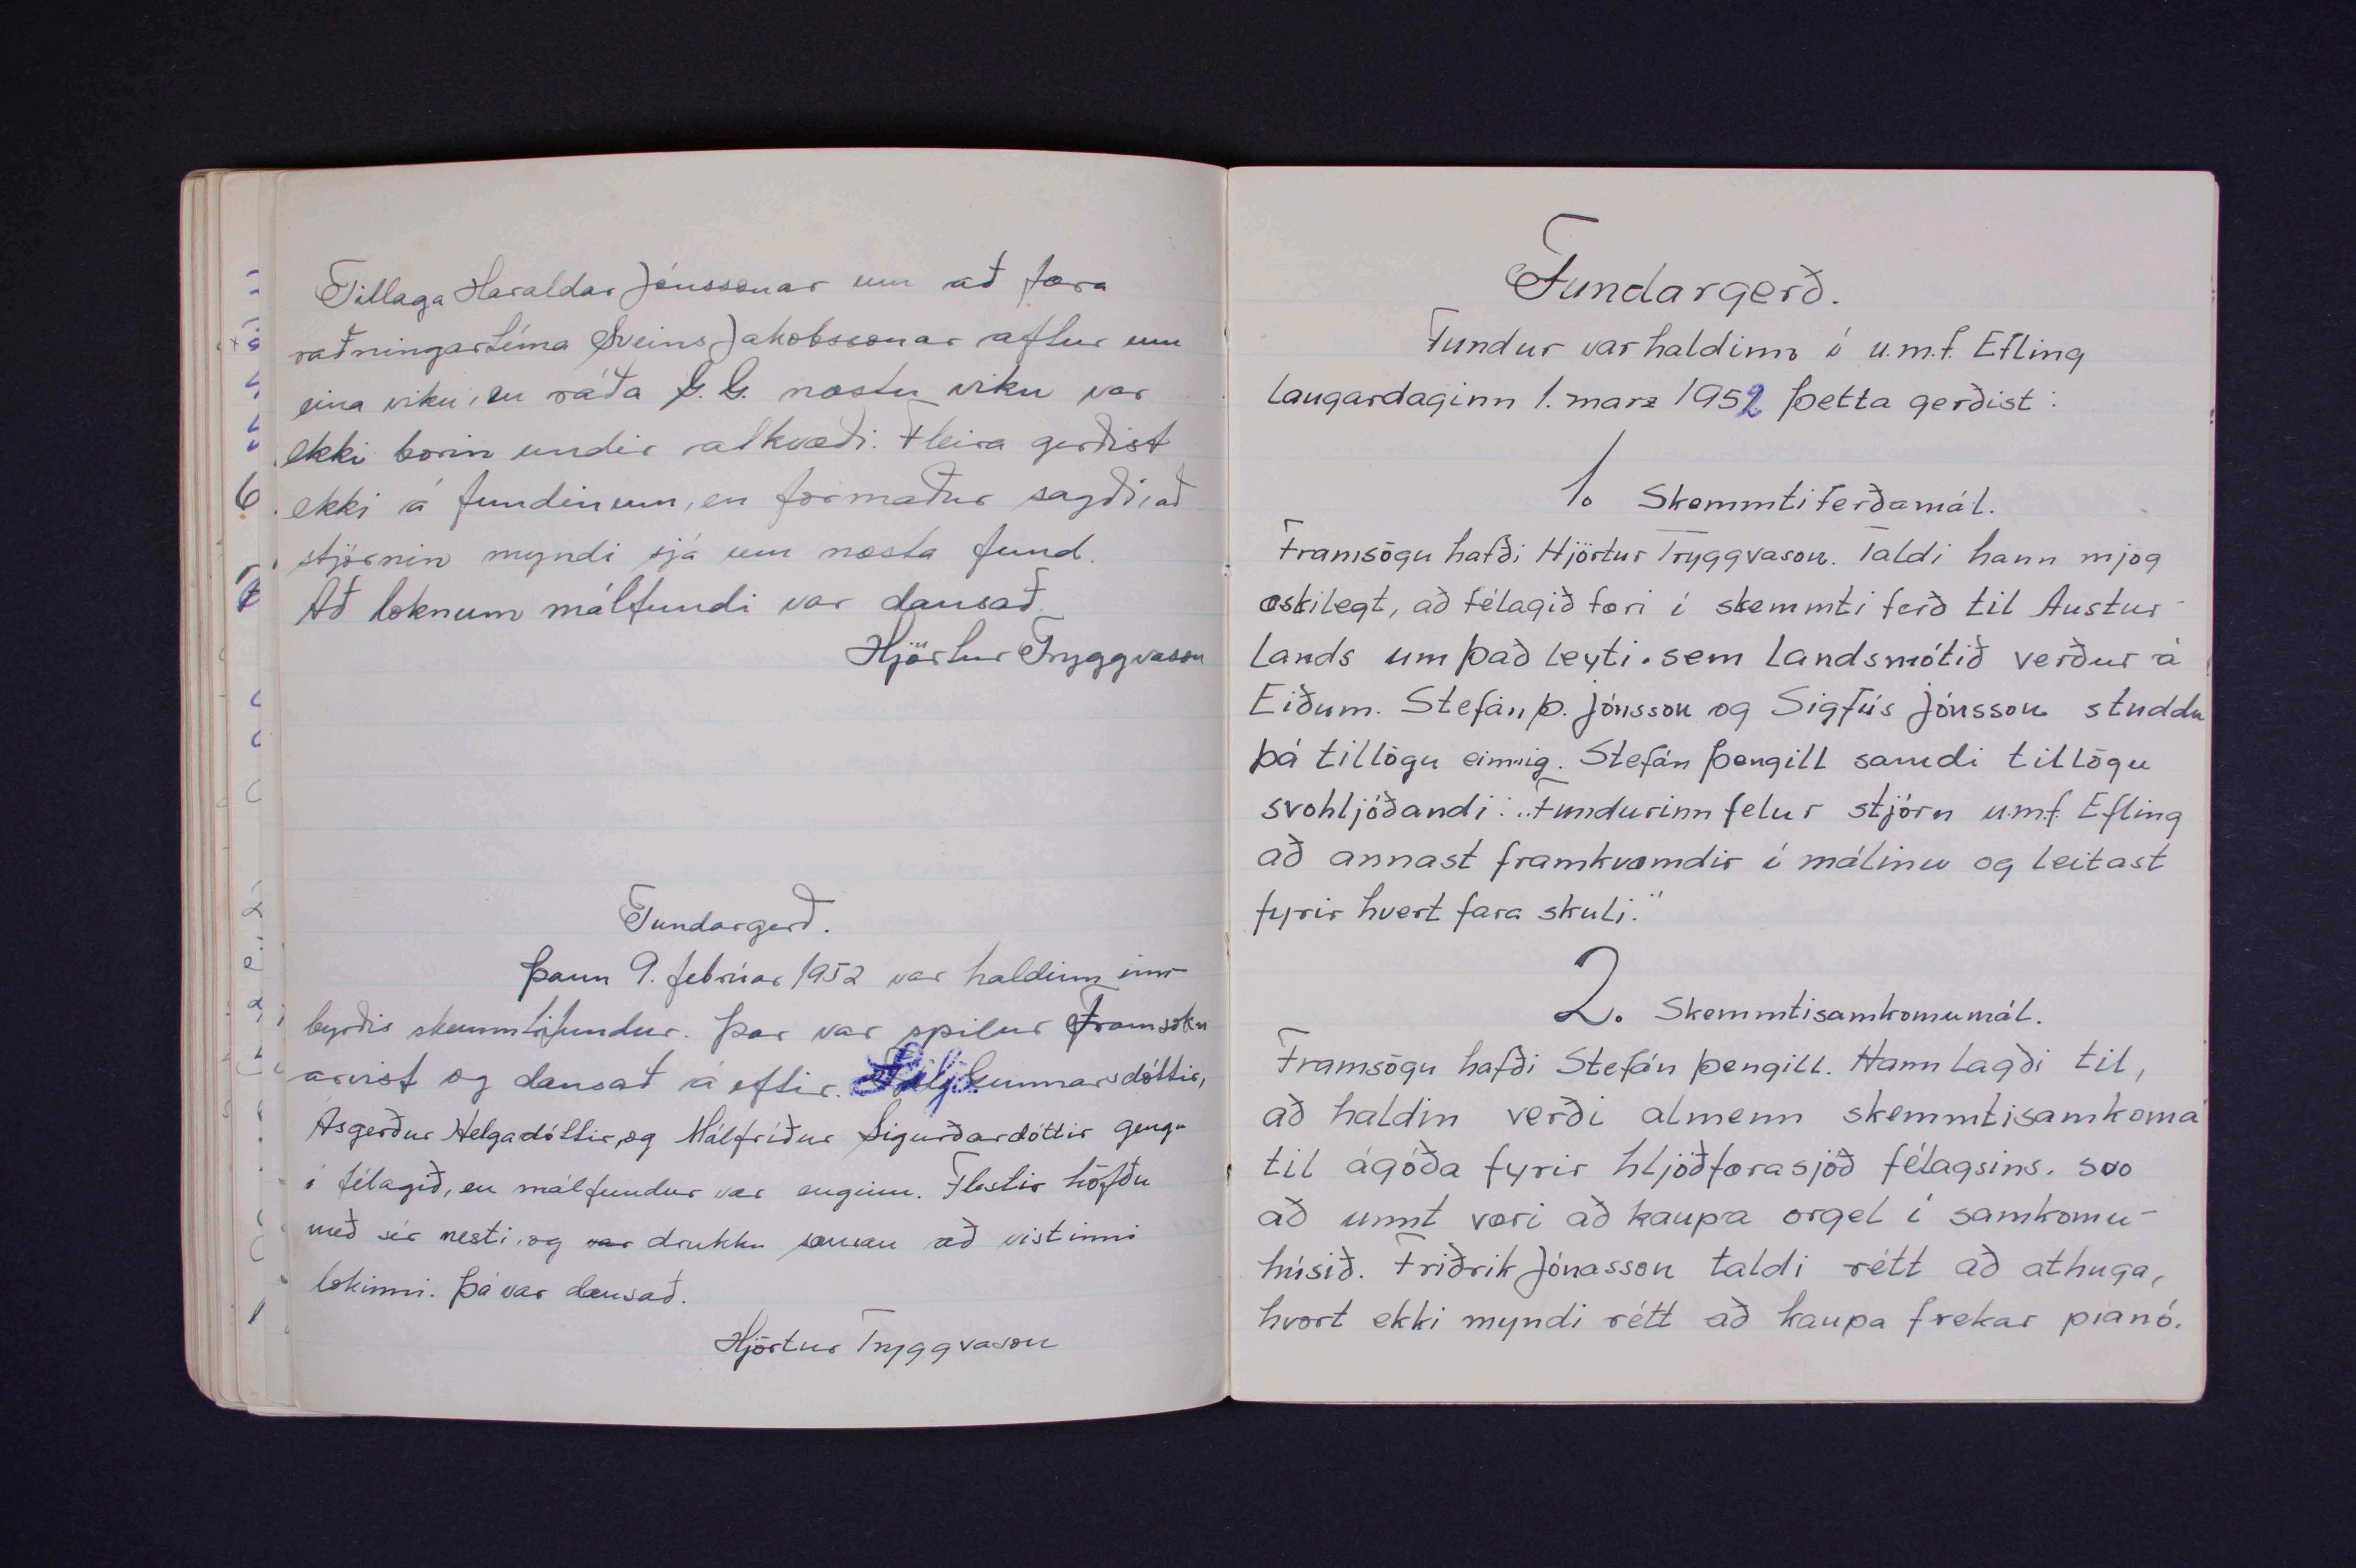 Tillaga Haraldar Jónssonar um að færa
raðningartíma Sveins Jakobssonar aftur um
eina viku, en ráða G.G. næstu viku var
ekki borin undir atkvæði. Fleira gerðist
ekki á fundinum, en formaður sagði, að
stjórnin myndi sjá um næsta fund.
Að loknum málfundi var dansað.
Hjörtur Tryggvason
Fundargerð.
Þann 9. febrúar 1952 var haldinn inn-
byrðis skemmtifundur. Þar var spiluð Framsókn
arvist og dansað á eftir. Gunnarsdóttir,
Ásgerður Helgadóttir, og Málfríður Sigurðardóttir gengu
í félagið, en málfundur var enginn. Flestir höfðu
með sér nesti, og var drukku saman að vistinni
lokinni. Þá var dansað.
Hjörtur Tryggvason
Fundargerð.
Fundur var haldinn í u.m.f. Efling
laugardaginn 1. marz 1952 Þetta gerðist:
1. Skemmtiferðamál.
Framsögu hafði Hjörtur Tryggvason. Taldi hann mjög
æskilegt, að félagið færi í skemmtiferð til Austur-
lands um það leyti. sem landsmótið verður á
Eiðum. Stefán Þ. Jónsson og Sigfús Jónsson studdu
þá tillögu einnig. Stefán Þengill samdi tillögu
svohljóðandi: „Fundurinn felur stjórn u.m.f. Efling
að annast framkvæmdir í málinu og leitast
fyrir hvert fara skuli."
2. Skemmtisamkomumál.
Framsögu hafði Stefán Þengill. Hann lagði til,
að haldin verði almenn skemmtisamkoma
til ágóða fyrir hljóðfærasjóð félagsins. svo
að unnt væri að kaupa orgel í samkomu-
húsið. Friðrik Jónasson taldi rétt að athuga,
hvort ekki myndi rétt að kaupa frekar píanó.